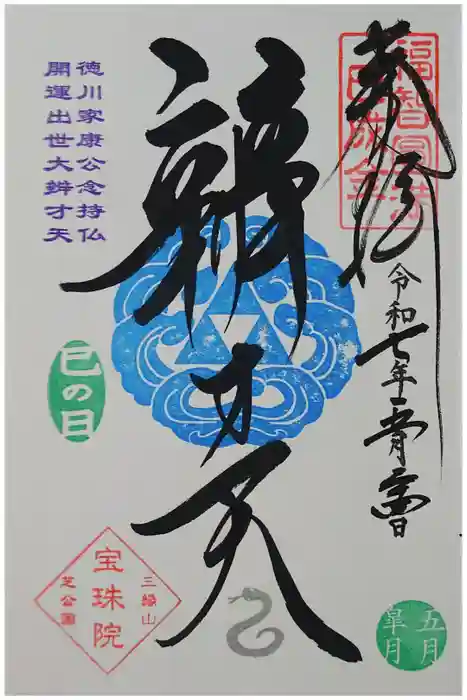 奉拝
令和七年
辨才天
徳川家康公念持仏
開運出世大辨才天
巳の日
三縁山
宝珠院
芝公園
五月
皐月